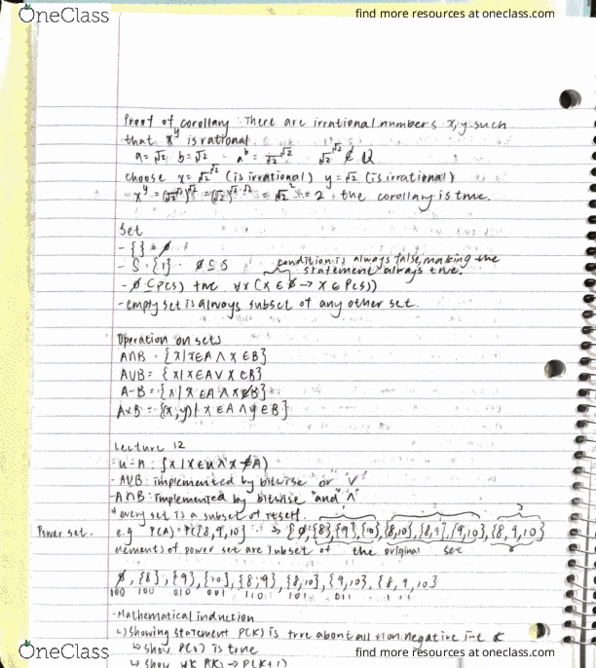 OneClass
find more resources at oneclass.com
Proof of corollary: There are irrational numbers x, y such
that x^y is rational
a=√2 b=√2 a^b = √2^√2 √2^√2 ∉ Q
choose x=√2^√2 (is irrational) y=√2 (is irrational)
x^y = (√2^√2)^√2 = (√2)^√2·√2 = √2^2 = 2 the corollary is true.
Set
- {} = ∅
- S = {1} ∅ ⊆ S condition is always false, making the
statement always true.
- ∅ ⊆ P(S) true ∀x (x ∈ ∅ → x ∈ P(S))
- empty set is always subset of any other set.
Operation on sets
A∩B = {x | x∈A ∧ x∈B}
A∪B = {x | x∈A ∨ x∈B}
A-B = {x | x∈A ∧ x∉B}
A×B = {(x,y) | x∈A ∧ y∈B}
Lecture 12
u-A = {x | x∈u ∧ x∉A}
- A∪B: implemented by bitwise "or" "∨"
- A∩B: implemented by bitwise "and" "∧"
* every set is a subset of itself.
Power set. e.g P(A) = P({8,9,10} → {∅,{8},{9},{10},{8,10},{8,9},{9,10},{8,9,10}
elements of power set are subset of the original set
∅, {8}, {9}, {10}, {8,9}, {8,10}, {9,10}, {8,9,10}
100 010 001 110 101 011
- Mathematical induction
↳ showing statement P(K) is true about all non negative int K
↳ show P(1) is true
↳ show ∀K P(K) → P(K+1)
OneClass
find more resources at oneclass.com